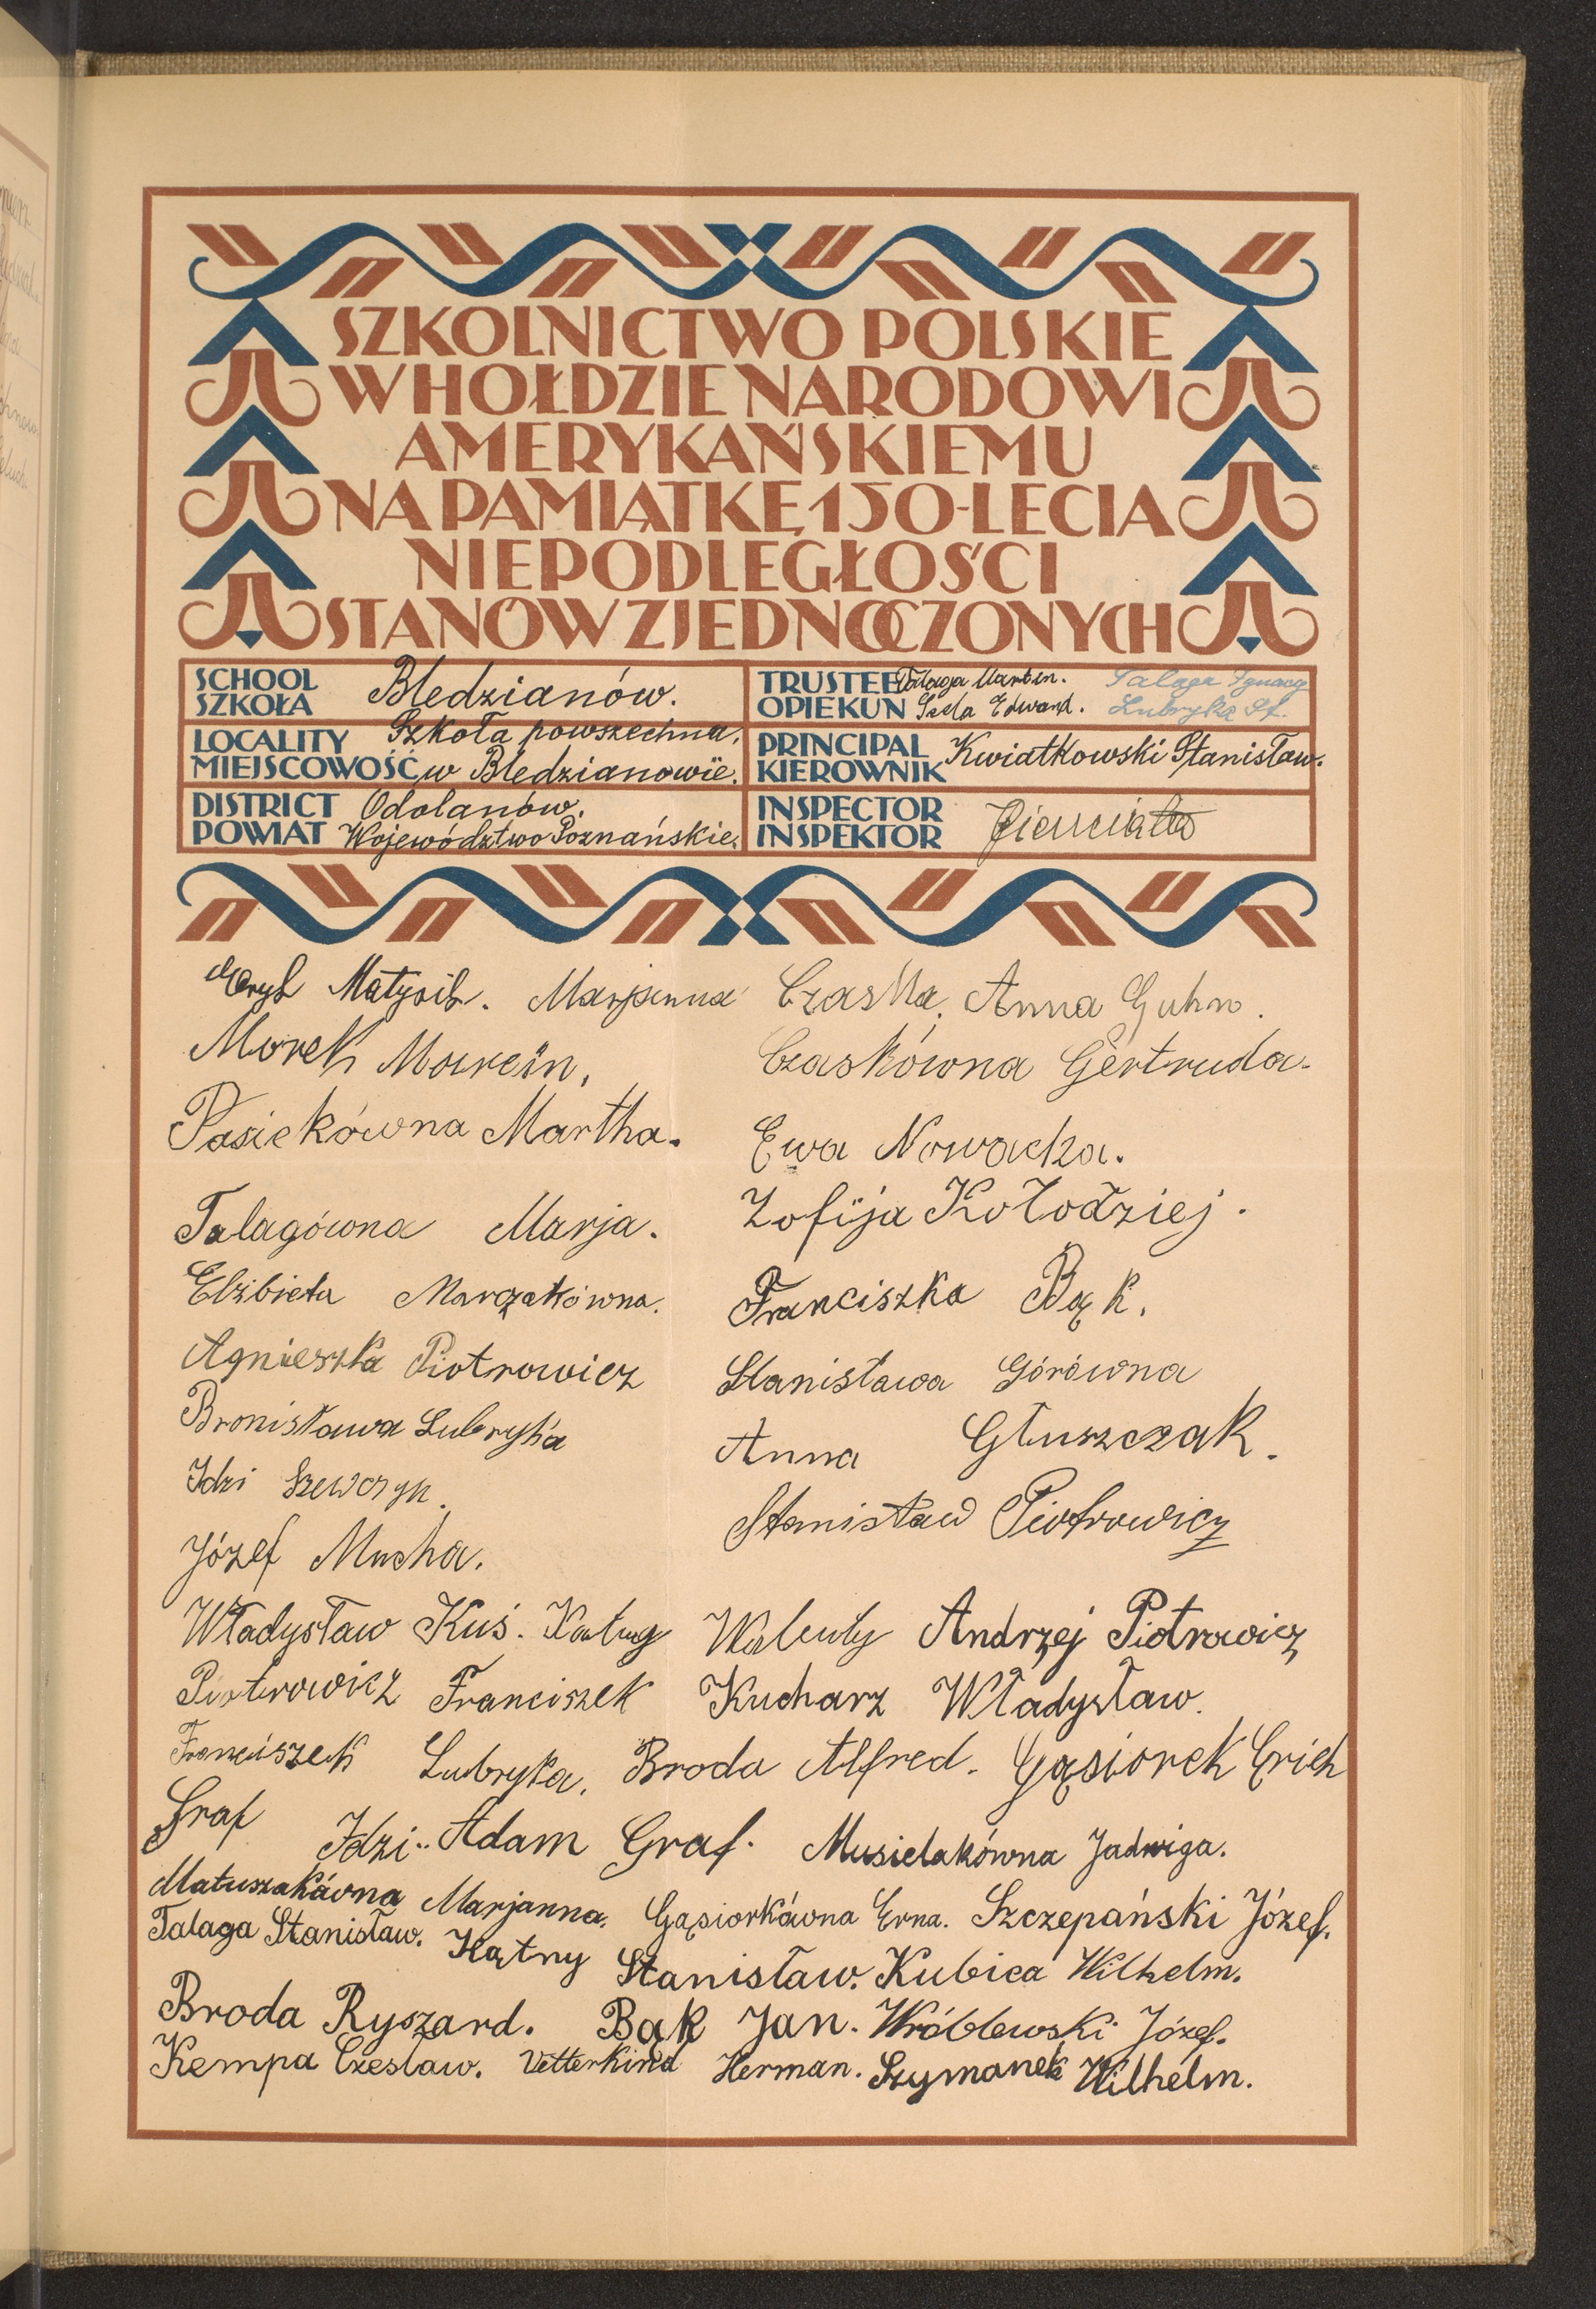 SZKOLNICTWO POLSKIE
W HOŁDZIE NARODOWI
AMERYKAŃSKIEMU
NA PAMIĄTKĘ 150-LECIA
NIEPODLEGŁOŚCI
STANÓW ZJEDNOCZONYCH
SCHOOL
SZKOŁA
Bledzianów.
TRUSTEE Talaga Marcin. Talaga Ignacy
OPIEKUN Szela Edward. Lubryka St.
LOCALITY
MIEJSCOWOŚĆ
Szkoła powszechna,
w Bledzianowie.
PRINCIPAL
KIEROWNIK
Kwiatkowski Stanisław.
DISTRICT
POWIAT
Odolanów.
Województwo Poznańskie.
INSPECTOR
INSPEKTOR
Eryk Matysik. Marjanna Czaska. Anna Guhn.
Morek Marcin, Czaskówna Gertruda.
Pasiekówna Martha. Ewa Nowacka.
Talagówna Marja. Zofija Kołodziej.
Elżbieta Franciszka Bąk.
Agnieszka Piotrowicz Stanisława Górówna
Bronisława Lubryka Anna Głuszczak.
Idzi Szewczyk. Stanisław Piotrowicz
Józef Mucha.
Władysław Kuś. Walenty Andrzej Piotrowicz
Piotrowicz Franciszek Kucharz Władysław.
Franciszek Lubryka, Broda Alfred. Gąsiorek Erich
Graf Idzi. Adam Graf. Musielakówna Jadwiga.
Matuszakówna Marjanna. Gąsiorkówna Erna. Szczepański Józef.
Talaga Stanisław. Kątny Stanisław. Kubica Wilhelm.
Broda Ryszard. Bąk Jan. Wróblewski Józef.
Kempa Czesław. Vetterkind Herman. Szymanek Wilhelm.